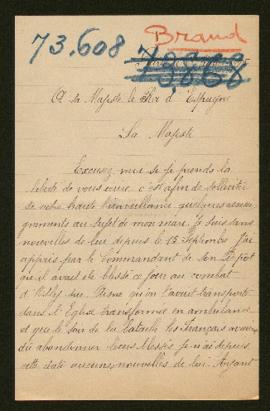 Brand
73.608
A sa Majesté le Roi d'Espagne
Sa Majesté
Excusez moi si je prends la
liberté de vous écrire c'est afin de solliciter
de votre haute bienveillance quelques rensei
gnements au sujet de mon mari. Je suis sans
nouvelles de lui depuis le 15 Septembre j'ai
appris par le Commandant de son Dépôt
qu'il avait été blessé ce jour au combat
sur Aisne qu'on l'avait transporté
dans l'Eglise transformée en ambulance
et que le soir de la bataille les Français avaient
dû abandonner leurs blessés je n'ai depuis
cette date aucunes nouvelles de lui. Ayant